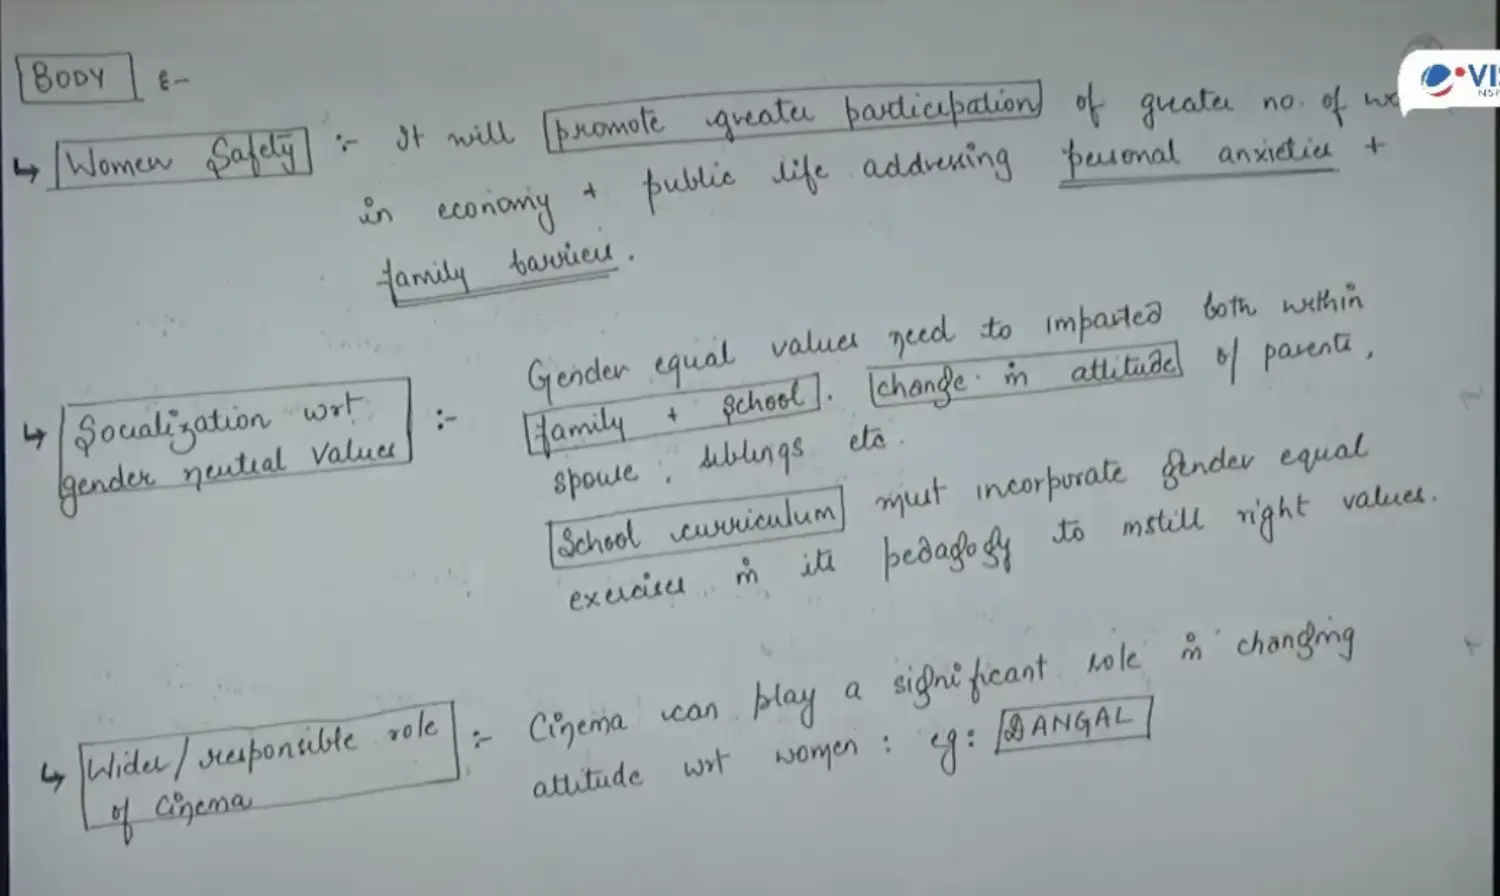 BODY :-
VIS
NSP
↳ Women Safety :- It will promote greater participation of greater no. of
in economy + public life addressing personal anxieties +
family barriers.
↳ Socialization wrt
gender neutral values :-
Gender equal values need to imparted both within
family + school. change in attitude of parents,
spouse, siblings etc.
School curriculum must incorporate gender equal
exercises in its pedagogy to instill right values.
↳ Wider/responsible role
of Cinema :-
Cinema can play a significant role in changing
attitude wrt women : eg: DANGAL